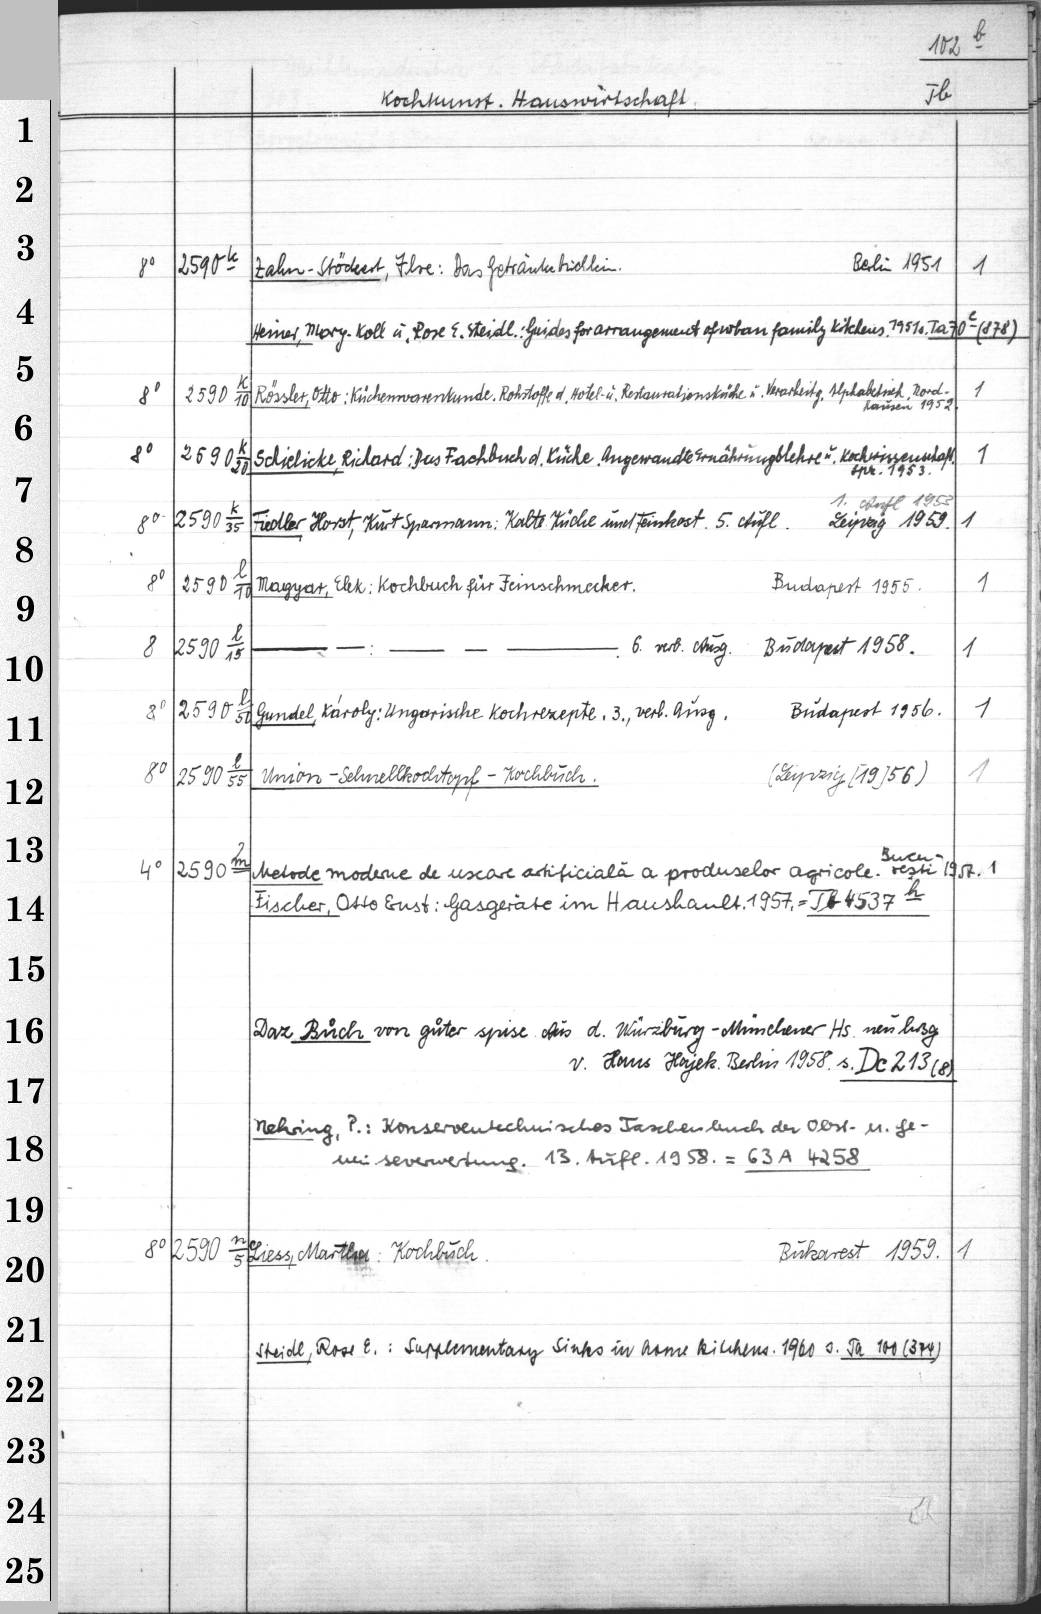 102 b
Kochkunst. Hauswirtschaft. Tb
1
2
3
8° 2590 k Zahn-Stöckert, Ilse: Das Getränkebüchlein. Berlin 1951 1
4
Heiner, Mary-Koll u. Rose E. Steidl.: Guides for arrangement of urban family kitchens. 1951 s. Ta 70 c (878)
5
8° 2590 k/10 Rössler, Otto: Küchenwarenkunde. Rohstoffe d. Hotel- u. Restaurationsküche u. Verarbeitg. Alphabetisch. Nord- 1
hausen 1952.
6
8° 2590 k/30 Schielicke, Richard: Das Fachbuch d. Küche. Angewandte Ernährungslehre u. Kochwissenschaft. 1
Lpz. 1953.
7
1. Aufl 1953
8° 2590 k/35 Fiedler, Horst, Kurt Sparmann: Kalte Küche und Feinkost. 5. Aufl. Leipzig 1959. 1
8
8° 2590 l/10 Magyar, Elek: Kochbuch für Feinschmecker. Budapest 1955. 1
9
8 2590 l/15 — — : — — — . 6. verb. Ausg. Budapest 1958. 1
10
8° 2590 l/50 Gundel, Károly: Ungarische Kochrezepte. 3., verb. Ausg. Budapest 1956. 1
11
8° 2590 l/55 Union-Schnellkochtopf-Kochbuch. (Leipzig [19]56) 1
12
13
Bucu-
4° 2590 m Metode moderne de uscare artificială a produselor agricole. reşti 1957. 1
14
Fischer, Otto Ernst: Gasgeräte im Haushault. 1957. = Tb 4537 h
15
16
Daz Bůch von gůter spise. Aus d. Würzburg-Münchener Hs. neu hrsg
v. Hans Hajek. Berlin 1958. s. Dc 213 (8)
17
Nehring, P.: Konserventechnisches Taschenbuch der Obst- u. Ge-
18
müseverwertung. 13. Aufl. 1958. = 63 A 4258
19
8° 2590 n/5 Liess, Martha: Kochbuch. Bukarest 1959. 1
20
21
Steidl, Rose E.: Supplementary Sinks in home kitchens. 1960 s. Ta 100 (374)
22
23
24
25